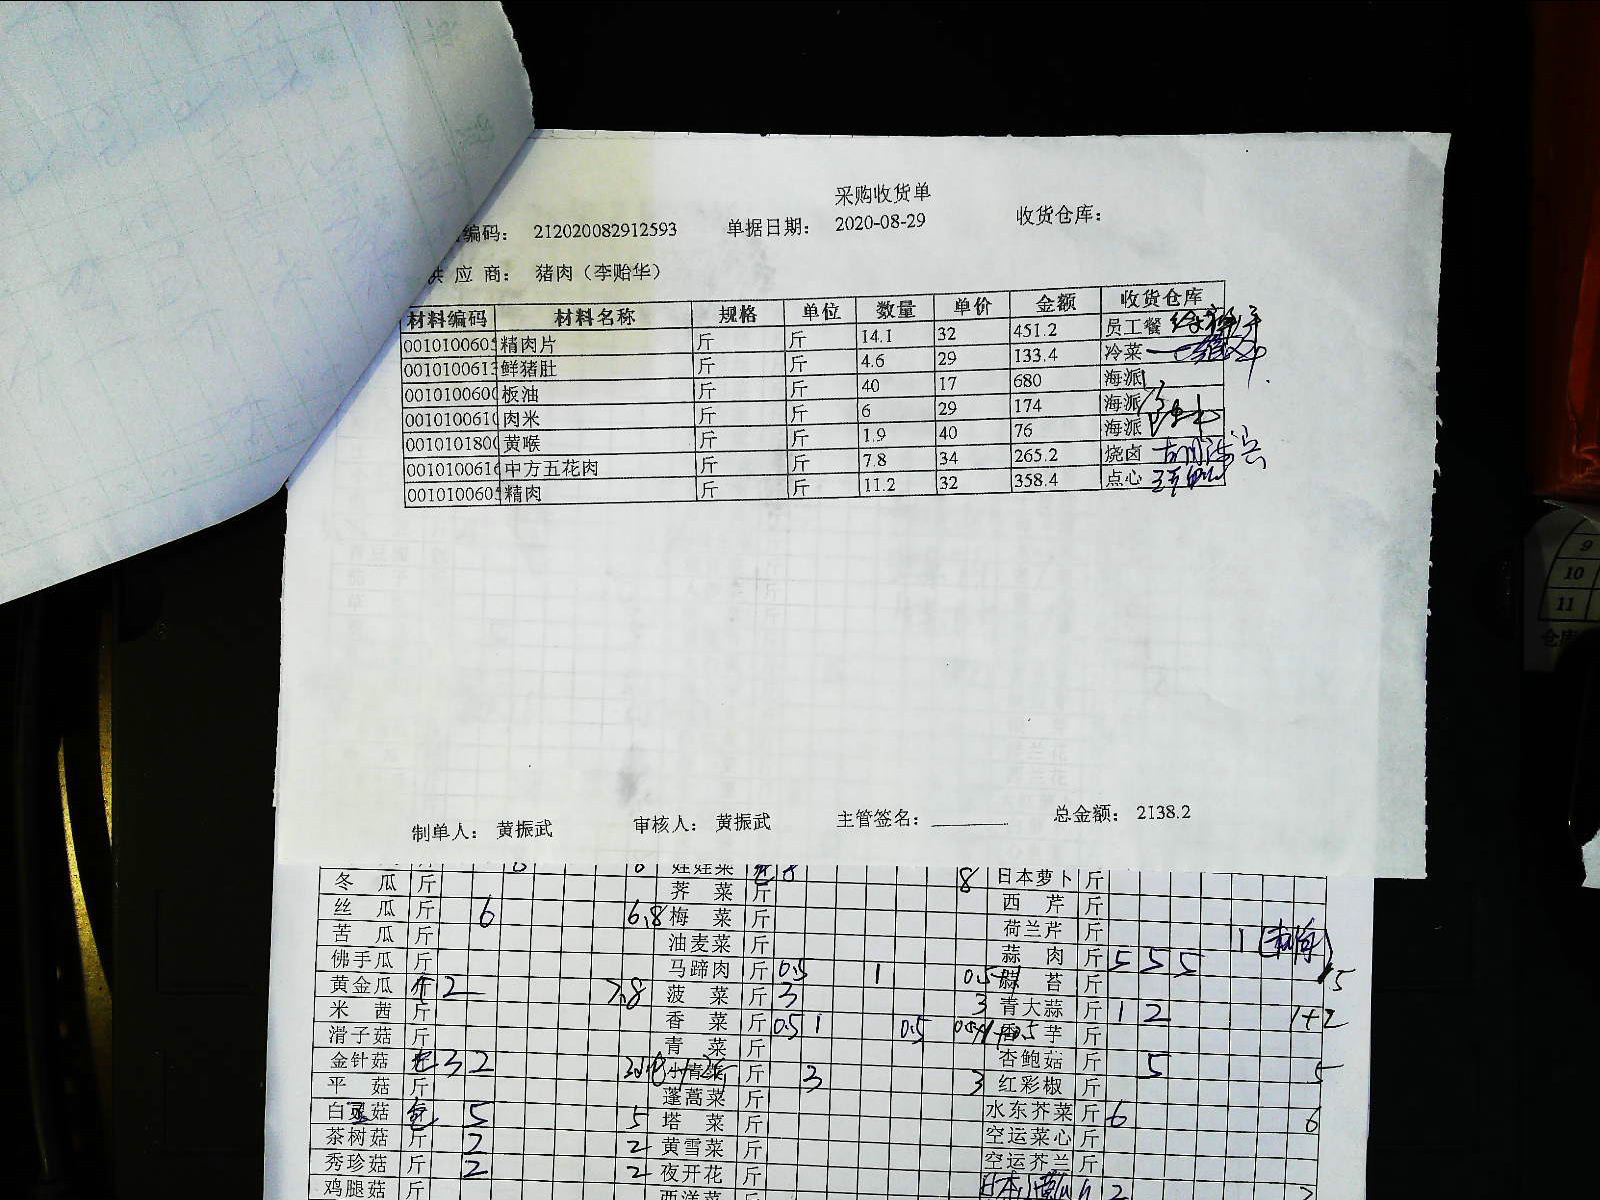 采购收货单
编码： 212020082912593 单据日期： 2020-08-29 收货仓库：
供 应 商： 猪肉（李贻华）
材料编码 材料名称 规格 单位 数量 单价 金额 收货仓库
0010100605 精肉片 斤 斤 14.1 32 451.2 员工餐
0010100613 鲜猪肚 斤 斤 4.6 29 133.4 冷菜
0010100600 板油 斤 斤 40 17 680 海派
0010100610 肉米 斤 斤 6 29 174 海派
0010101800 黄喉 斤 斤 1.9 40 76 海派
0010100616 中方五花肉 斤 斤 7.8 34 265.2 烧卤
0010100605 精肉 斤 斤 11.2 32 358.4 点心
制单人： 黄振武 审核人： 黄振武 主管签名： 总金额： 2138.2
娃娃菜
冬 瓜 斤 荠 菜 斤 8 日本萝卜 斤
丝 瓜 斤 6 6.8 梅 菜 斤 西 芹 斤
苦 瓜 斤 油麦菜 斤 荷兰芹 斤 1
佛手瓜 斤 马蹄肉 斤 0.5 1 0.5 蒜 肉 斤 5 5 5 15
黄金瓜 斤 2 2.8 菠 菜 斤 3 3 蒜 苔 斤
米 茜 斤 香 菜 斤 0.5 1 0.5 青大蒜 斤 1 2 1+2
滑子菇 斤 青 菜 斤 芋 斤
金针菇 包 3 2 小青菜 斤 3 3 杏鲍菇 斤 5 5
平 菇 斤 蓬蒿菜 斤 红彩椒 斤
白灵菇 包 5 5 塔 菜 斤 水东芥菜 斤 6 6
茶树菇 斤 2 2 黄雪菜 斤 空运菜心 斤
秀珍菇 斤 2 2 夜开花 斤 空运芥兰 斤
鸡腿菇 斤 西洋菜 斤 日本小 2 2
9
10
11
仓库